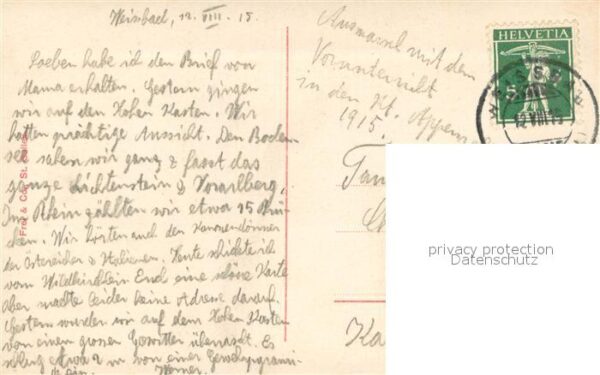 Weissbad, 12. VIII. 15.
Soeben habe ich den Brief von
Mama erhalten. Gestern gingen
wir auf den Hohen Kasten. Wir
hatten prächtige Aussicht. Den Boden-
see sahen wir ganz & fasst das
ganze Lichtenstein & Vorarlberg,
Im Rhein zählten wir etwa 15 Brü-
cken. Wir hörten auch den Kanonendonner
der Östreicher & Italiener. Heute schickte ich
vom Wildkirchlein Euch eine schöne Karte
Aber machte leider keine Adresse darauf.
Gestern wurden wir auf dem Hohen Kasten
von einem grossen Gewitter überrascht. Es
schlug etwa 2 m von einer
ein. Werner.
Ausmarsch mit dem
Vorunterricht
in den Kt. Appenz
1915.
HELVETIA
5
WEISSBAD
12.VIII.15
Frei & Co., St. Gallen
privacy protection
Datenschutz